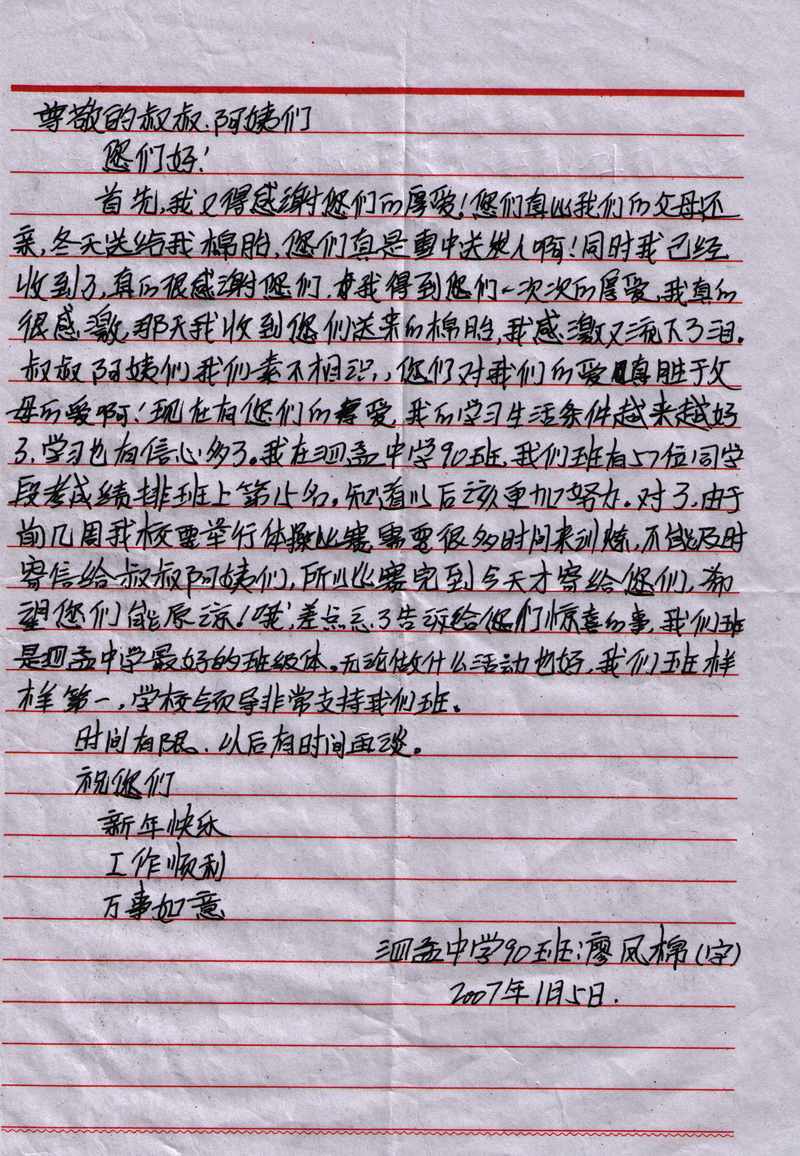 尊敬的叔叔、阿姨们
您们好!
首先,我又得感谢您们的厚爱!您们真比我们的父母还
亲,冬天送给我棉胎,您们真是雪中送炭人啊!同时我已经
收到了,真的很感谢您们,我得到您们一次次的厚爱,我真的
很感激,那天我收到您们送来的棉胎,我感激又流下了泪。
叔叔阿姨们,我们素不相识,,您们对我们的爱真胜于父
母的爱啊!现在有您们的厚爱,我的学习生活条件越来越好
了,学习也有信心多了。我在泗孟中学90班,我们班有57位同学
段考成绩排班上第15名。知道以后该更加努力。对了,由于
前几周我校要举行体操比赛需要很多时间来训炼,不能及时
寄信给叔叔阿姨们,所以比赛完到今天才寄给您们,希
望您们能原谅!哦,差点忘了告诉给您们惊喜的事,我们班
是泗孟中学最好的班级体。无论做什么活动也好,我们班样
样第一,学校领导非常支持我们班。
时间有限、以后有时间再谈。
祝您们
新年快乐
工作顺利
万事如意
泗孟中学90班:廖凤棉(字)
2007年1月5日.